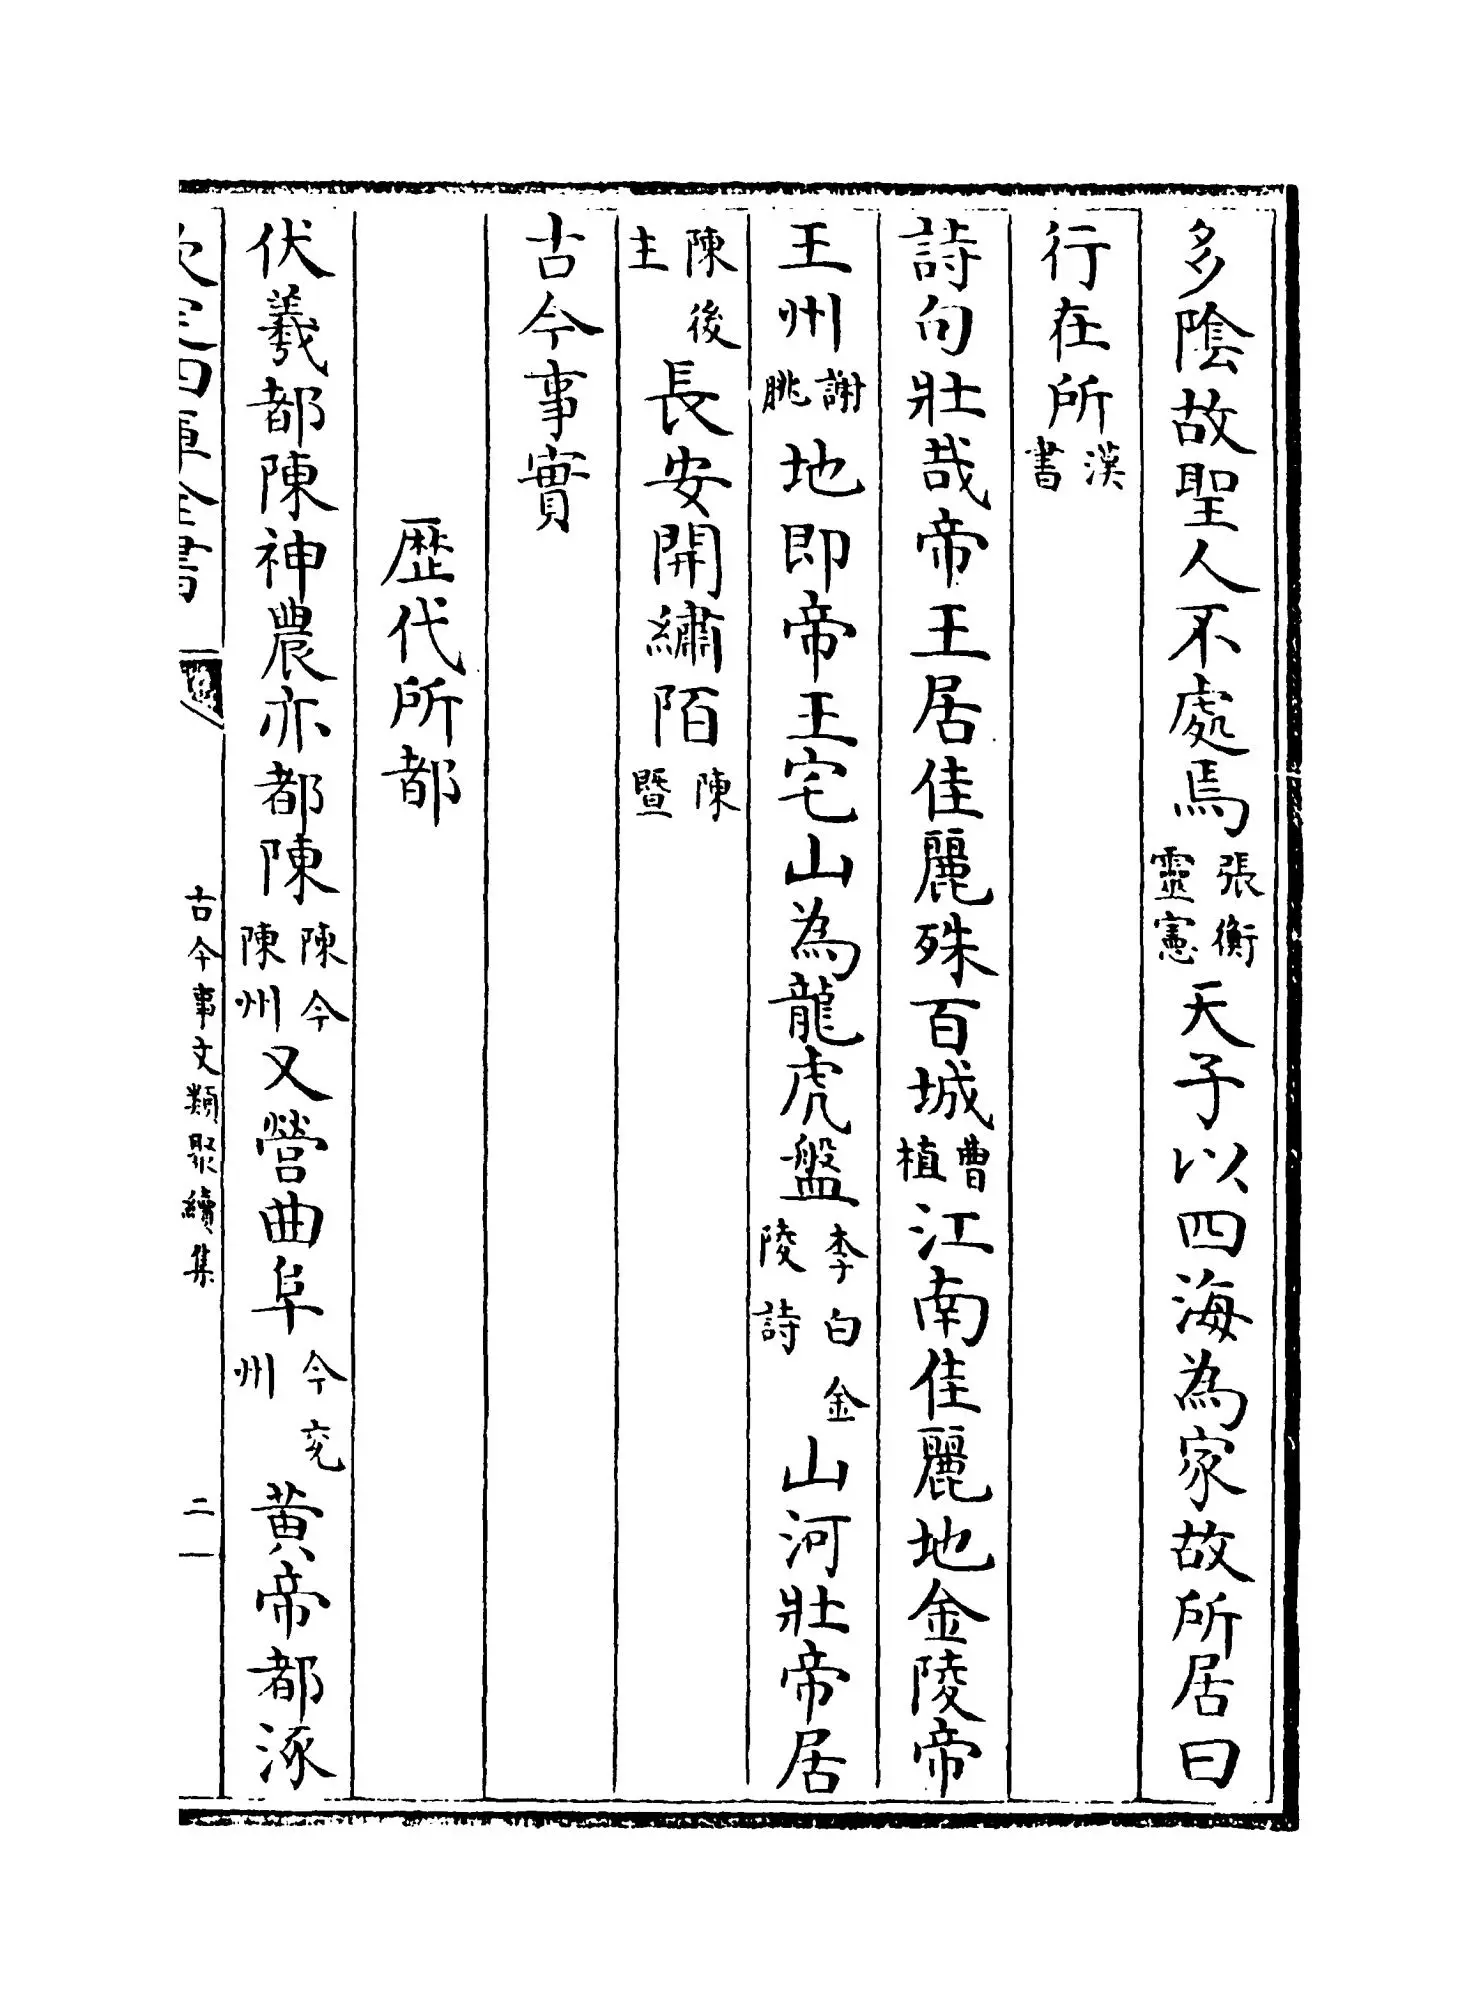 多陰故聖人不處焉張衡靈憲天子以四海為家故所居曰
行在所漢書
詩句壯哉帝王居佳麗殊百城曹植江南佳麗地金陵帝
王州謝朓地即帝王宅山為龍虎盤李白金陵詩山河壯帝居
陳後主長安開繡陌陳暨
古今事實
歴代所都
伏羲都陳神農亦都陳陳今陳州又營曲阜今兖州黄帝都涿
欽定四庫全書
古今事文類聚續集
二